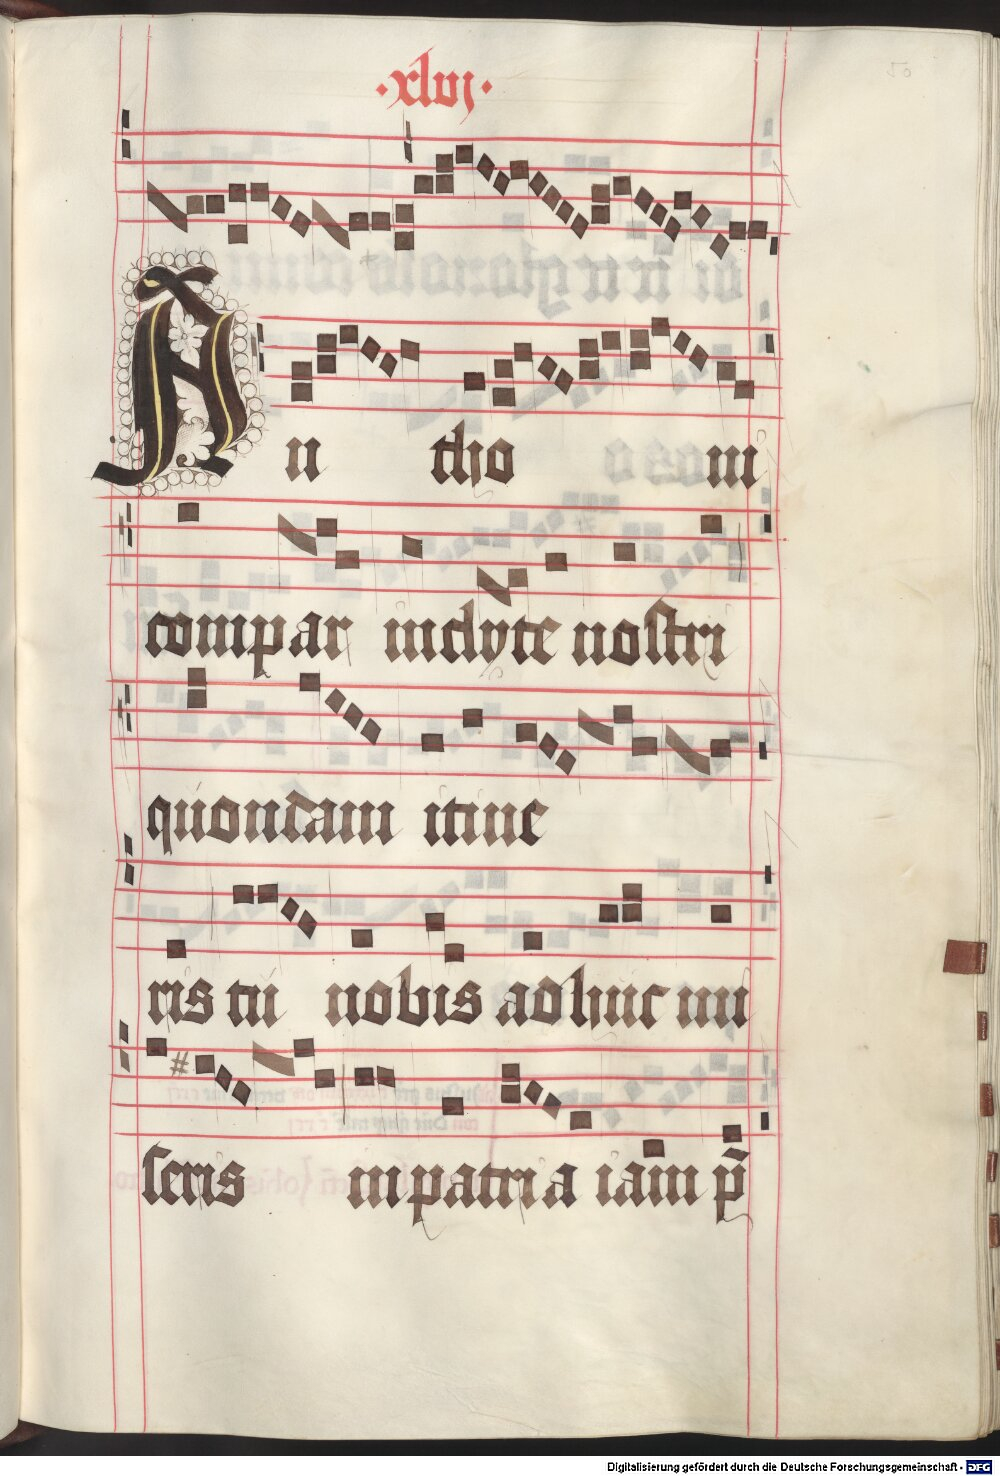 ·xlvj·
An tho ni
compar inclyte nostri
quondam itine
ris tu nobis adhuc mi
seris in patria iam p̄
50
Digitalisierung gefördert durch die Deutsche Forschungsgemeinschaft - DFG